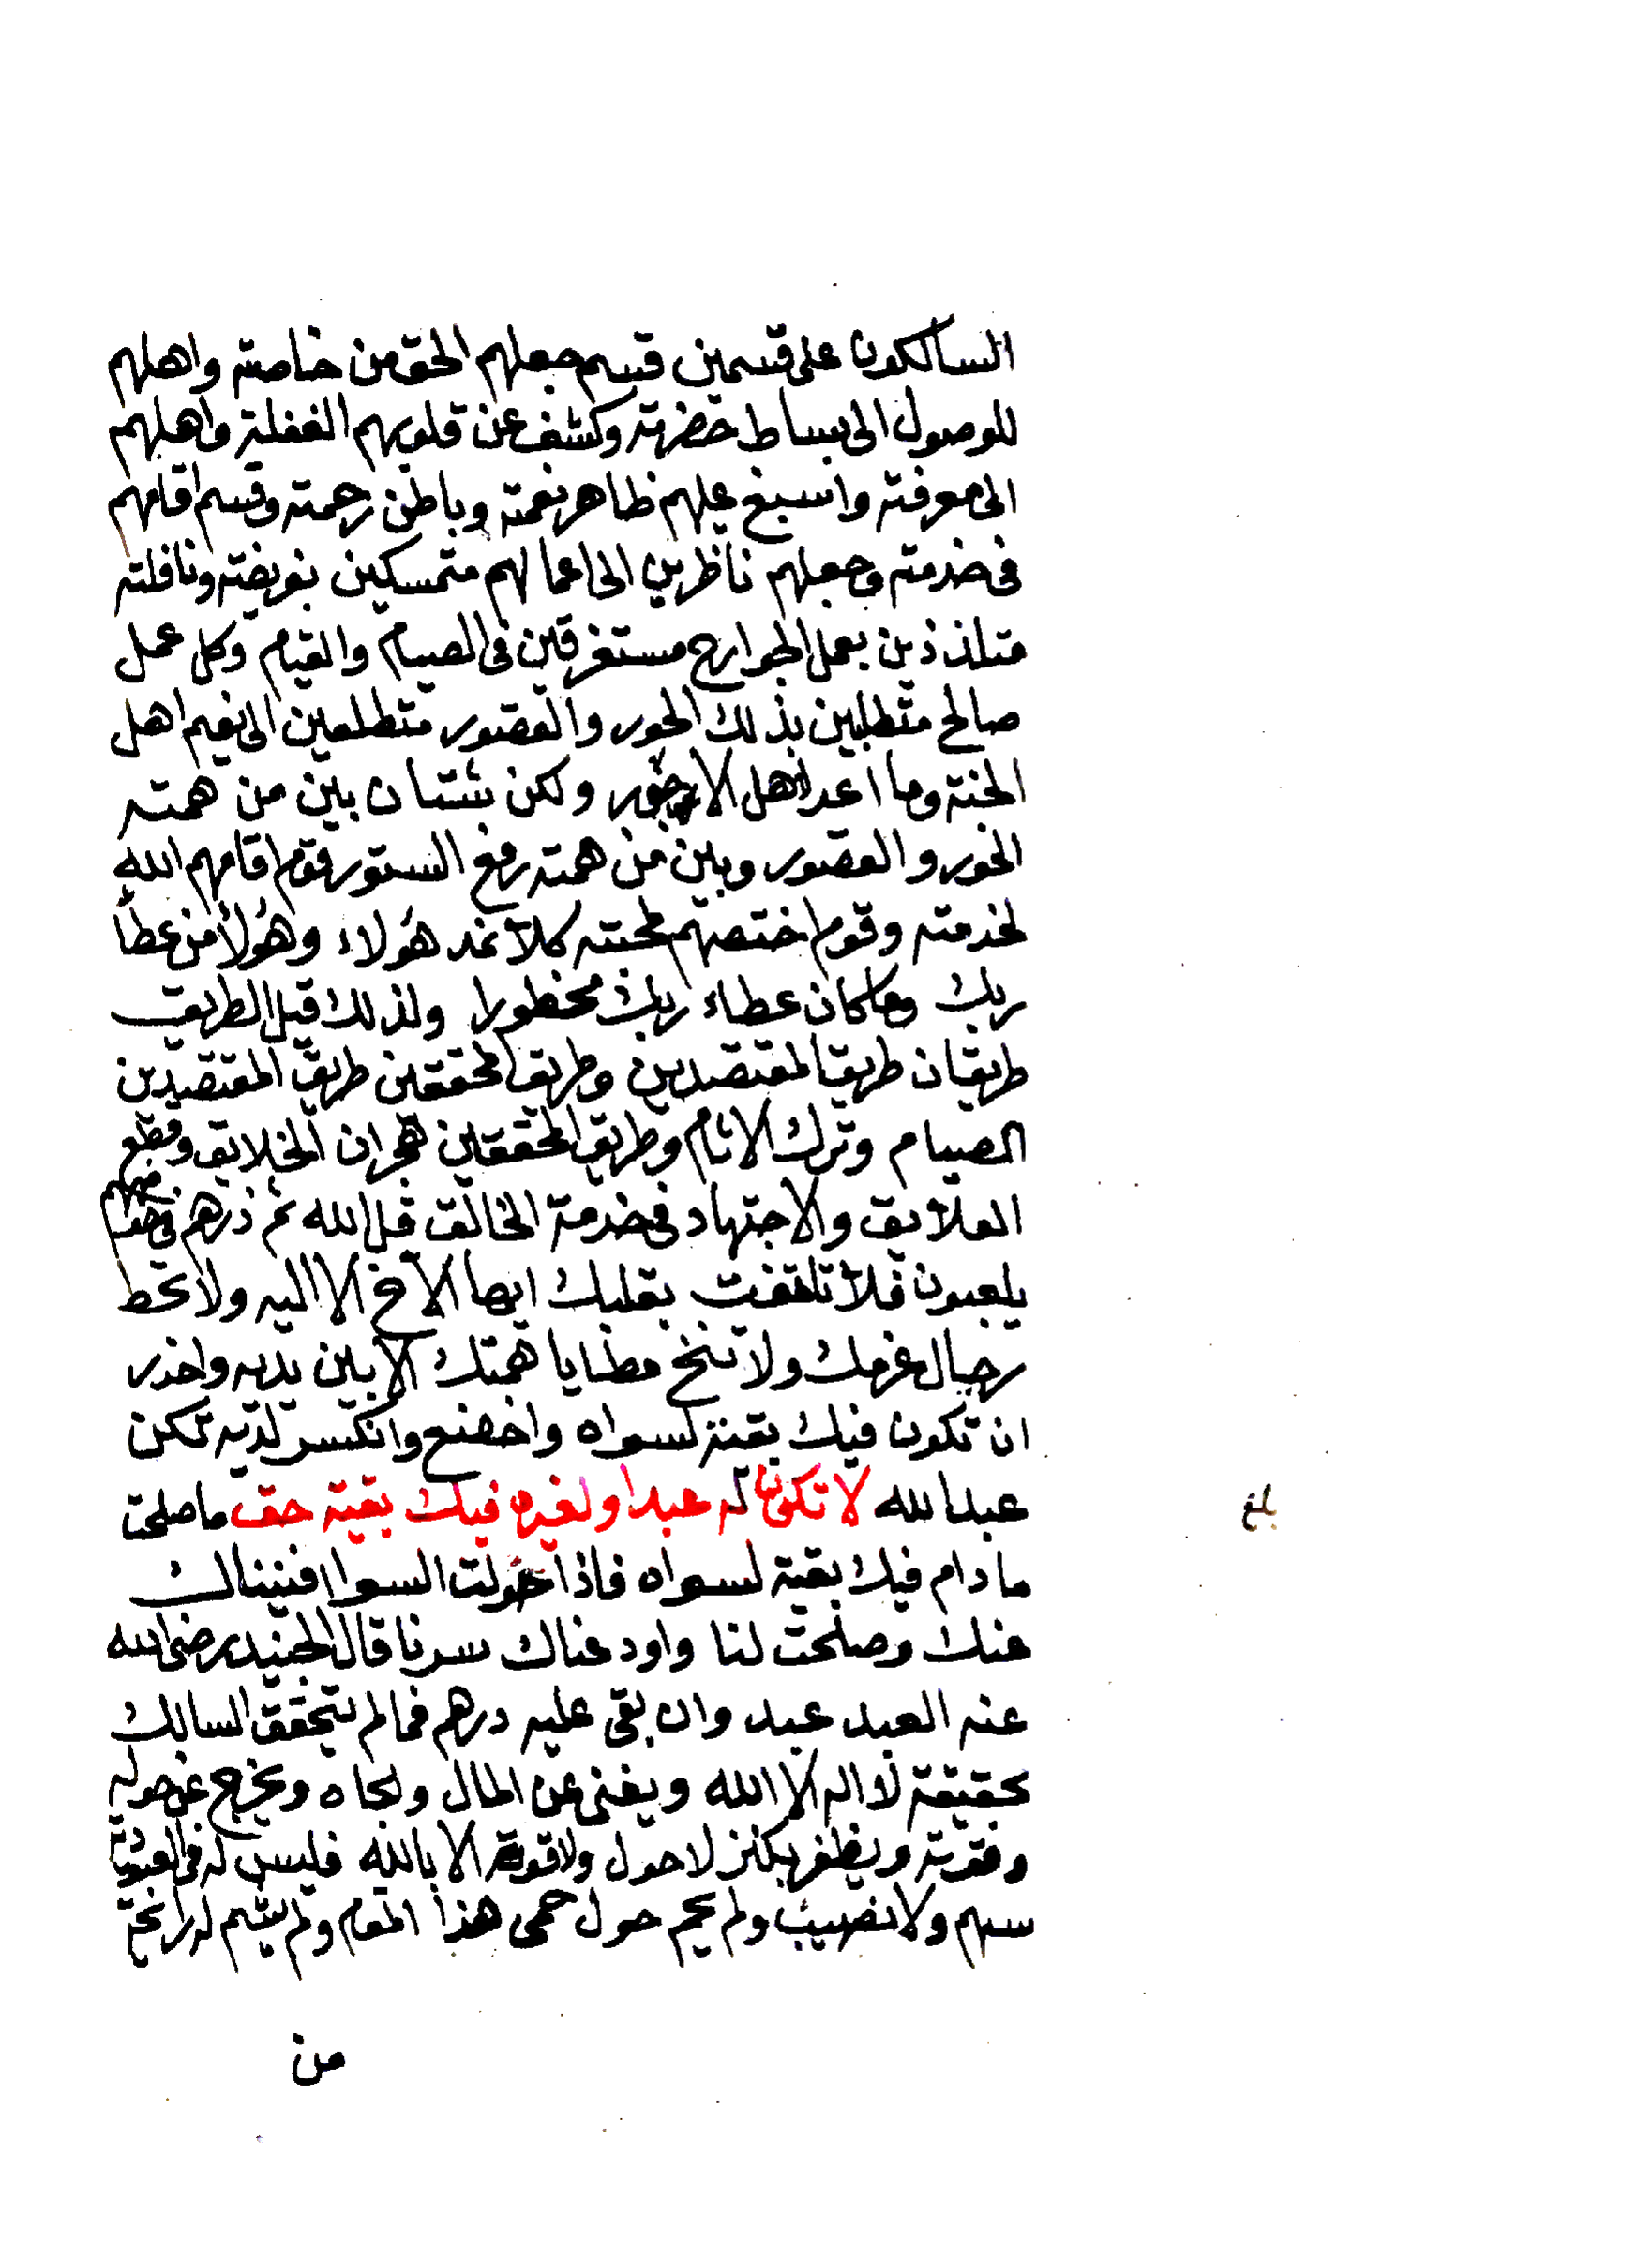 السالكون على قسمين قسم جعلهم الحق من خاصته واهلهم
للوصول الى بساط حضرته وكشف عن قلوبهم الغفلة واهلهم
الى معرفته واسبغ عليهم ظاهر نعمته وباطن رحمته وقسم اقامهم
فى خدمته وجعلهم ناظرين الى اعمالهم متمسكين بفريضته ونافلته
متلذذين بعمل الجوارح مستغرقين فى الصيام والقيام وكل عمل
صالح متطلبين بذلك الحور والقصور متطلعين الى نعيم اهل
الجنة وما اعد لاهل الاجور ولكن شتان بين من همته
الحور والقصور وبين من همته رفع الستور فقوم اقامهم الله
لخدمته وقوم اختصهم بمحبته كلا نمد هؤلاء وهؤلاء من عطا
ربك وما كان عطاء ربك محظورا ولذلك قيل الطريق
طريقان طريق المقتصدين وطريق المحققين طريق المقتصدين
الصيام وترك الاثام وطريق المحققين هجران الخلايق وقطع
العلايق والاجتهاد فى خدمة الخالق قل الله ثم ذرهم فى خوضهم
يلعبون فلا تلتفت بقلبك ايها الاخ الا اليه ولا تحط
رحال عزمك ولا تنخ مطايا همتك الا بين يديه واحذر
ان تكون فيك بقية لسواه واخضع وانكسر لديه تكن
عبدا لله لا تكون له عبدا ولغيره فيك بقية حق ما صلحت
ما دام فيك بقية لسواه فاذا حولت السوا افنيناك
عنك وصلحت لنا واودعناك سرنا قال الجنيد رضى الله
عنه العبد عبد وان بقى عليه درهم فما لم يتحقق السالك
بحقيقة لا اله الا الله ويفنى عن المال والجاه ويخرج عن حوله
وقوته ويظفر بكنز لا حول ولا قوة الا بالله فليس له فى العبودية
سهم ولا نصيب ولم يحم حول حمى هذا المقام ولم يشم له رائحة
من
بلغ